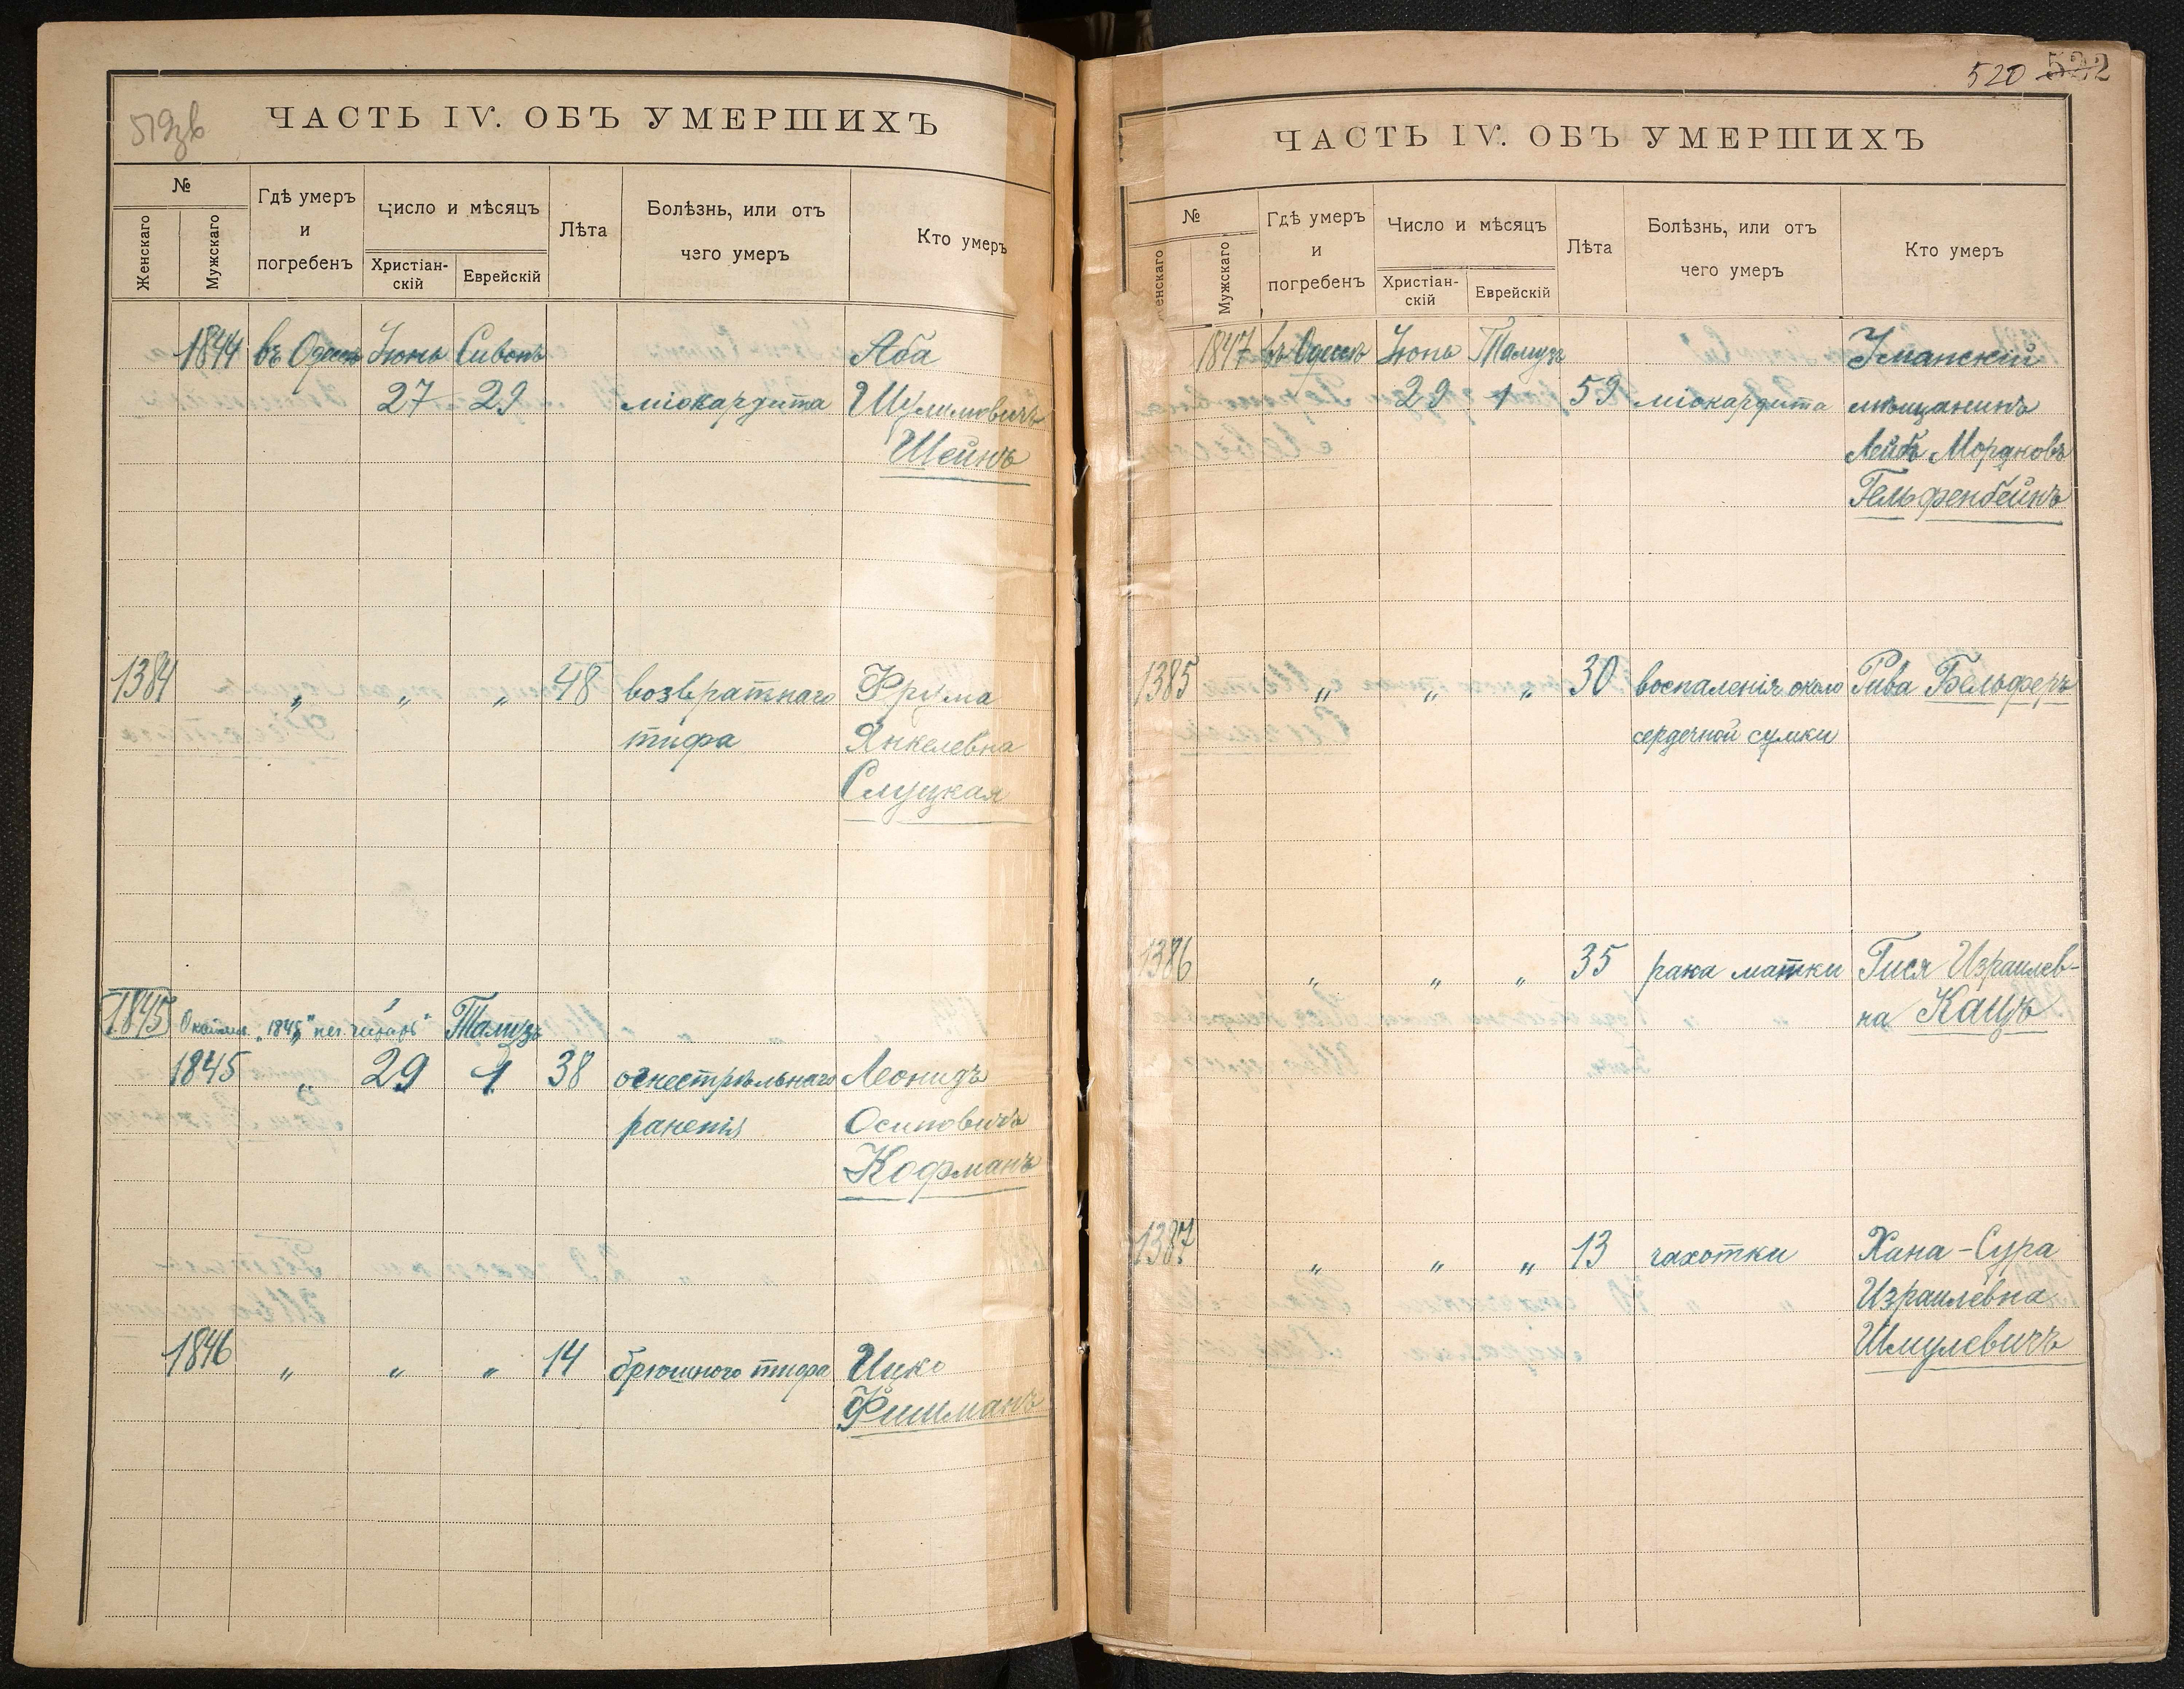 519зв
ЧАСТЬ IV. ОБЪ УМЕРШИХЪ
№
Женскаго
Мужскаго
Гдѣ умеръ
и
погребенъ
Число и мѣсяцъ
Христіан-
скій
Еврейскій
Лѣта
Болѣзнь, или отъ
чего умеръ
Кто умеръ
1844 въ Одессѣ Іюнь Сивонъ Аба
27 29 міокардита Шулимовичъ
Шейнъ
1384 " " " 48 возвратнаго Фрума
тифа Янкелевна
Слуцкая
1845 "1845" не читать Тамузъ
1845 " 29 1 38 огнестрѣльнаго Леонидъ
раненія Осиповичъ
Кофманъ
1846 " " " 14 брюшного тифа Ицко
Фишманъ
520 522
ЧАСТЬ IV. ОБЪ УМЕРШИХЪ
№
Женскаго
Мужскаго
Гдѣ умеръ
и
погребенъ
Число и мѣсяцъ
Христіан-
скій
Еврейскій
Лѣта
Болѣзнь, или отъ
чего умеръ
Кто умеръ
1847 въ Одессѣ Іюнь Тамузъ Уманскій
29 1 59 міокардита мѣщанинъ
Лейбъ Мордковъ
Гельфенбейнъ
1385 " " " 30 воспаленія около Рива Бельферъ
сердечной сумки
1386 " " " 35 рака матки Гися Израилев-
на Кацъ
1387 " " " 13 чахотки Хана-Сура
Израилевна
Шмулевичъ